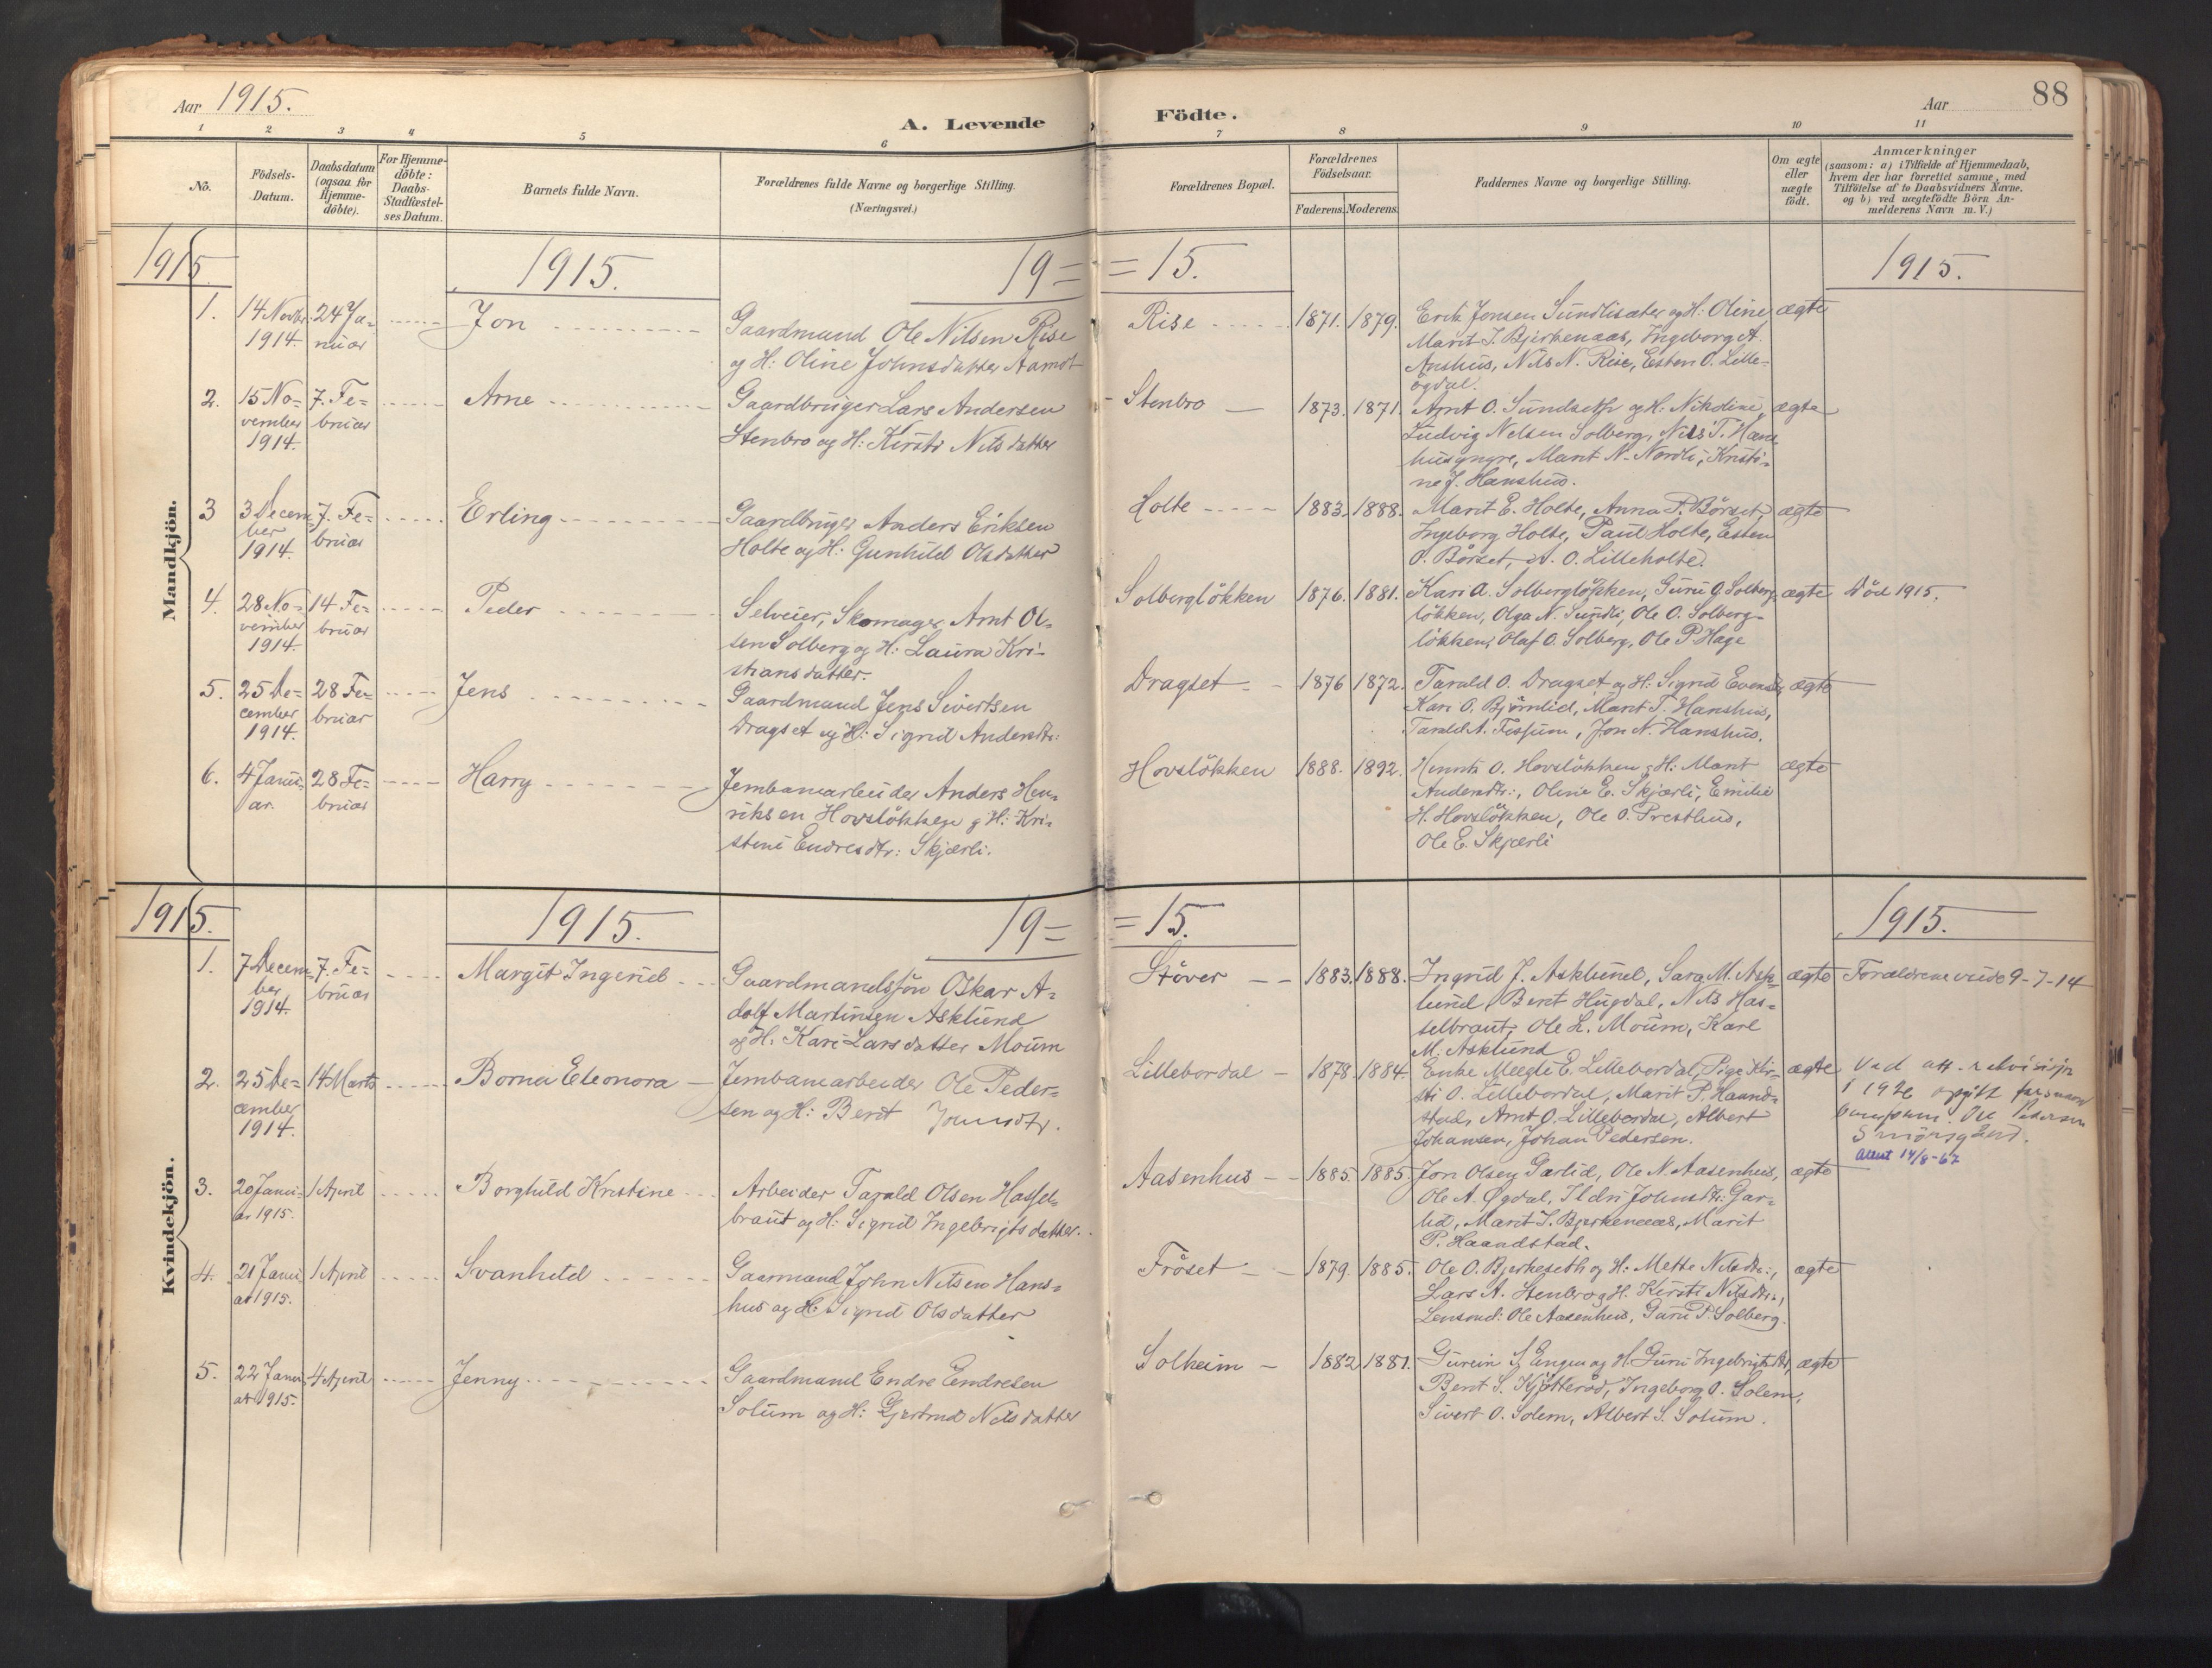 Aar 1915.
A. Levende
Födte.
Aar
88
1 2 3 4 5 6 7 8 9 10 11
No.
Födsels-
Datum.
Daabsdatum
(ogsaa for
Hjemme-
döbte).
For Hjemme-
döbte:
Daabs-
Stadfæstel-
ses Datum.
Barnets fulde Navn.
Forældrenes fulde Navne og borgerlige Stilling.
(Næringsvei.)
Forældrenes Bopæl.
Forældrenes
Födselsaar.
Faderens.
Moderens.
Faddernes Navne og borgerlige Stilling.
Om ægte
eller
uægte
födt.
Anmærkninger
(saasom: a) i Tilfælde af Hjemmedaab,
hvem der har forrettet samme, med
Tilföielse af to Daabsvidners Navne.
og b) ved uægtefödte Börn An-
melderens Navn m. V.)
Mandkjön.
1915 1915. 19= =15. 1915.
1. 14 Novbr. 1914. 24 Ja-
nuar
Jon
Gaardmand Ole Nilsen Rise
og H: Oline Johnsdatter Aamot
Rise 1871. 1879.
Erik Jonsen Sundlisæter og H: Oline
Marit J. Bjerkenaas, Ingeborg A.
Anshus, Nils N. Rise, Esten O. Lille-
ögdal.
ægte
2. 15 No-
vember
1914.
7. Fe-
bruar
Arne
Gaardbruger Lars Andersen
Stenbro og H: Kirsti Nilsdatter
Stenbro 1873. 1871.
Arnt O. Sundseth og H: Nikoline,
Ludvig Nelsen Solberg, Nils T. Hans-
husyngre, Marit N. Nordli, Kristi-
ne J. Hanshus.
ægte
3 3 Decem-
ber
1914.
7. Fe-
bruar
Erling
Gaardbruger Anders Eriksen
Holte og H: Gunhild Olsdatter
Holte 1883. 1888.
Marit E. Holte, Anna P. Börset,
Ingeborg Holte, Paul Holte, Esten
O. Börset, N. O. Lilleholte.
ægte
4. 28 No-
vember
1914.
14 Fe-
bruar
Peder
Selveier, Skomager Arnt Ol-
sen Solberg og H: Laura Kri-
stiansdatter.
Solberglökken 1876. 1881.
Kari A. Solberglökken, Guru O. Solberg-
lökken, Olga N. Sundli, Ole O. Solberg-
lökken, Olaf O. Solberg, Ole P. Hage
ægte Död 1915.
5. 25 De-
cember
1914.
28 Fe-
bruar
Jens
Gaardmand Jens Sivertsen
Dragset og H: Sigrid Andersdtr:
Dragset 1876 1872.
Tarald O. Dragset og H: Sigrid Evensdtr
Kari O. Björnlid, Marit T. Hanshus,
Tarald A. Fissum, Jon N. Hanshus.
ægte
6. 4 Janu-
ar.
28 Fe-
bruar
Harry
Jernbanearbeider Anders Hen-
riksen Hovslökken og H: Kri-
stine Endresdtr: Skjærli.
Hovslökken 1888. 1892.
O. Hovslökken og H: Marit
Andersdtr:, Oline E. Skjærli, Emilie
H. Hovslökken, Ole O. Presthus,
Ole E. Skjærli
ægte
Kvindekjön.
1915. 1915. 19= =15. 1915.
1. 7 Decem-
ber
1914.
7. Fe-
bruar
Margit Ingerid
Gaardmandssön Oskar A-
dolf Martinsen Asklund
og H: Kari Larsdatter Moum
Stöver 1883. 1888.
Ingrid J. Asklund, Sara M. Ask-
lund, Berit Hugdal, Nils Has-
selbraut, Ole L. Moum, Karl
M. Asklund
ægte Forældrene viede 9-7-14
2. 25 De-
cember
1914.
14 Marts
Borna Eleonora
Jernbanearbeider Ole Peder-
sen og H: Berit
Lillebordal 1878. 1884.
Enke Meegle E. Lillebordal, Pige Kir-
sti O. Lillebordal, Marit P. Haand-
stad, Arnt O. Lillebordal, Albert
Johansen, Johan Pedersen.
ægte Ved att.
i 1926 opgitt farsnavn
Ole Pedersen
14/8-67
3. 20 Janu-
ar 1915.
1 April
Borghild Kristine
Arbeider Tarald Olsen Hassel-
braut og H: Sigrid Ingebrigtsdatter.
Aasenhus 1885. 1885.
Jon Olsen Garlid, Ole N. Aasenhus,
Ole A. Øgdal, Ildri Johnsdtr: Gar-
lid, Marit J. Bjerkenaas, Marit
P. Haandstad.
ægte
4. 21 Janu-
ar 1915.
1 April
Svanhild
Gaarmand John Nilsen Hans-
hus og H: Sigrid Olsdatter
Fröset 1879. 1885.
Ole O. Bjerkeseth og H: Mette Nilsdtr:,
Lars A. Stenbro og H. Kirsti Nilsdtr:,
Lensmd: Ole Aasenhus, Guru P. Solberg.
ægte
5. 22 Janu-
ar 1915.
4 April
Jenny
Gaardmand Endre Endresen
Solum og H: Gjertrud Nilsdatter
Solheim 1882 1881.
S. Engen og H. Guru Ingebrigtsdtr,
Berit S. Kjötteröd, Ingeborg O. Solem,
Sivert O. Solem, Albert S. Solum.
ægte